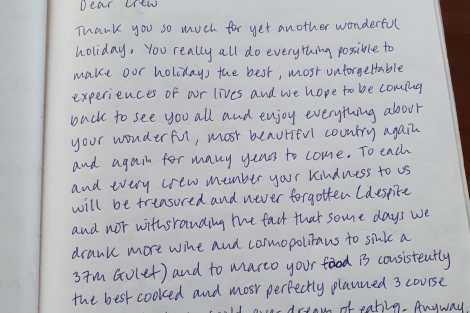 Dear Crew
Thank you so much for yet another wonderful
holiday. You really all do everything possible to
make our holidays the best, most unforgettable
experiences of our lives and we hope to be coming
back to see you all and enjoy everything about
your wonderful, most beautiful country again
and again for many years to come. To each
and every crew member your kindness to us
will be treasured and never forgotten (despite
and not withstanding the fact that some days we
drank more wine and cosmopolitans to sink a
37m Gulet) and to marco your food is consistently
the best cooked and most perfectly planned 3 course
ever dream of eating. Anyway